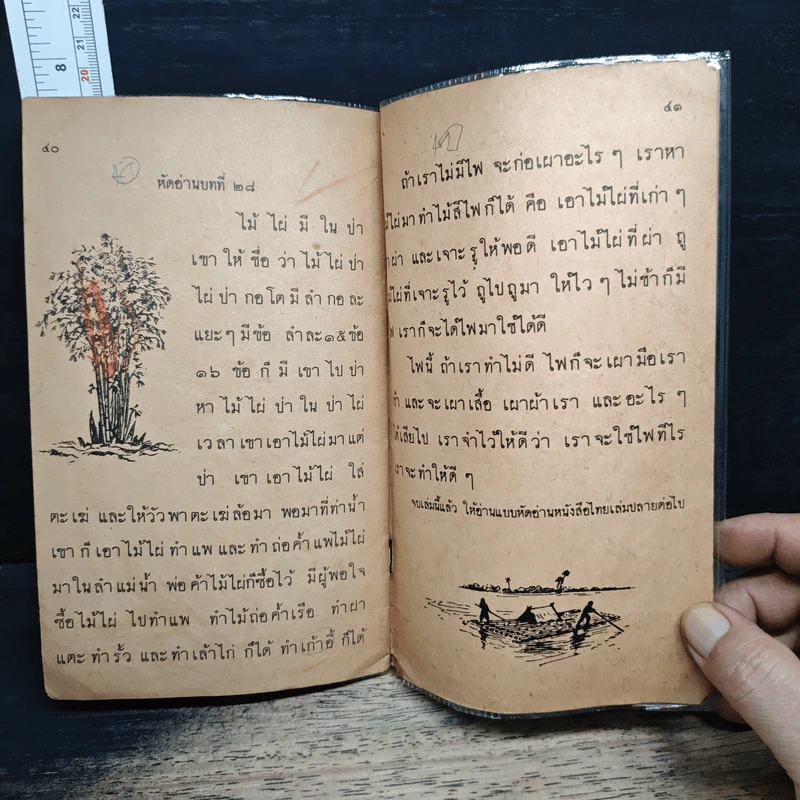 ๔๐
หัดอ่านบทที่ ๒๘
ไม้ ไผ่ มี ใน ป่า
เขา ให้ ชื่อ ว่า ไม้ ไผ่ ป่า
ไผ่ ป่า กอ โต มี ลำ กอ ละ
แยะ ๆ มี ข้อ ลำ ละ ๑๕ ข้อ
๑๖ ข้อ ก็ มี เขา ไป ป่า
หา ไม้ ไผ่ ป่า ใน ป่า ไผ่
เว ลา เขา เอา ไม้ ไผ่ มา แต่
ป่า เขา เอา ไม้ ไผ่ ใส่
ตะ เฆ่ และ ให้ วัว พา ตะ เฆ่ ล้อ มา พอ มา ที่ ท่า น้ำ
เขา ก็ เอา ไม้ ไผ่ ทำ แพ และ ทำ ถ่อ ค้ำ แพ ไม้ ไผ่
มา ใน ลำ แม่ น้ำ พ่อ ค้า ไม้ ไผ่ ก็ ซื้อ ไว้ มี ผู้ พอ ใจ
ซื้อ ไม้ ไผ่ ไป ทำ แพ ทำ ไม้ ถ่อ ค้ำ เรือ ทำ ฝา
แตะ ทำ รั้ว และ ทำ เล้า ไก่ ก็ ได้ ทำ เก้า อี้ ก็ ได้
๔๑
ถ้า เรา ไม่ มี ไฟ จะ ก่อ เผา อะ ไร ๆ เรา หา
ไม้ ไผ่ มา ทำ ไม้ สี ไฟ ก็ ได้ คือ เอา ไม้ ไผ่ ที่ เก่า ๆ
ผ่า และ เจาะ รู ให้ พอ ดี เอา ไม้ ไผ่ ที่ ผ่า ถู
ไม้ ไผ่ ที่ เจาะ รู ไว้ ถู ไป ถู มา ให้ ไว ๆ ไม่ ช้า ก็ มี
เรา ก็ จะ ได้ ไฟ มา ใช้ ได้ ดี
ไฟ นี้ ถ้า เรา ทำ ไม่ ดี ไฟ ก็ จะ เผา มือ เรา
และ จะ เผา เสื้อ เผา ผ้า เรา และ อะ ไร ๆ
ให้ เสีย ไป เรา จำ ไว้ ให้ ดี ว่า เรา จะ ใช้ ไฟ ที ไร
เรา จะ ทำ ให้ ดี ๆ
จบเล่มนี้แล้ว ให้อ่านแบบหัดอ่านหนังสือไทยเล่มปลายต่อไป
8
20
21
22